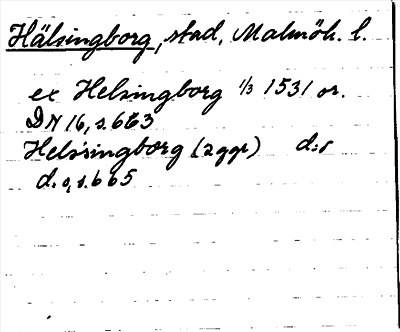 Hälsingborg, stad, Malmöh. l.
ex Helsingborg 1/3 1531 or.
DN 16, s. 663
Helssingborg (2 ggr) d:o
d.o, s. 665